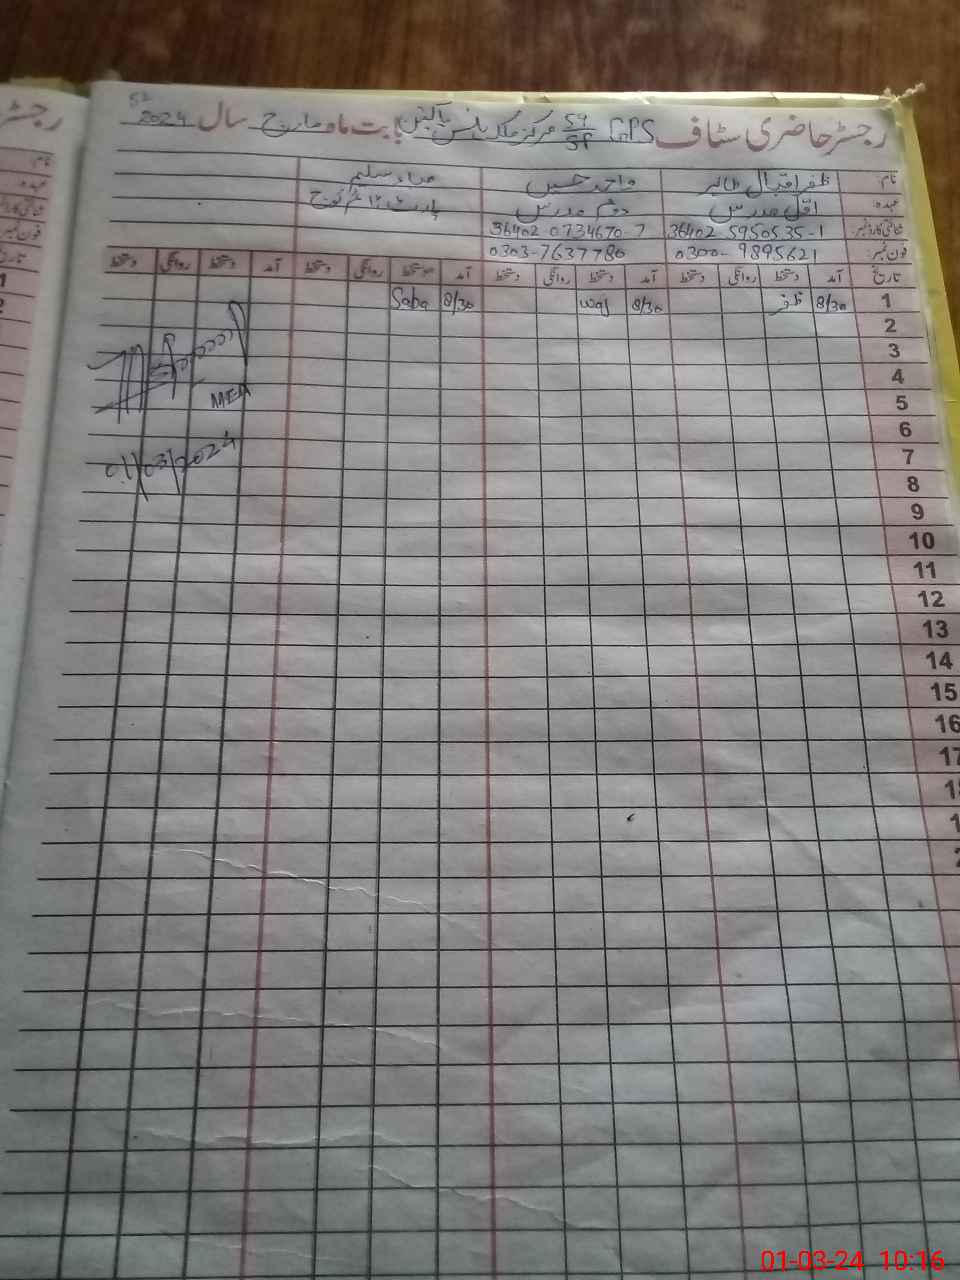 52
رجسٹر حاضری سٹاف GPS 59/SP مرکز ملکہ ہانس پاکپتن بابت ماہ مارچ سال 2024
نام: ظفر اقبال طاہر واجد حسین صباء سلیم
عہدہ: اوّل مدرس دوئم مدرس پارٹ ٹائم
شناختی کارڈ نمبر: 36402 5950535-1 36402 0734670-7
فون نمبر: 0300-9895621 0303-7637780
تاریخ آمد دستخط روانگی دستخط آمد دستخط روانگی دستخط آمد دستخط روانگی دستخط آمد دستخط روانگی دستخط
1 8/30 ظفر 8/30 waj 8/30 Saba
2
3
4
5 MEA
6
7 01/03/2024
8
9
10
11
12
13
14
15
16
17
رجسٹر
نام:
عہدہ:
شناختی کارڈ نمبر
فون نمبر:
تاریخ
1
2
01-03-24 10:16